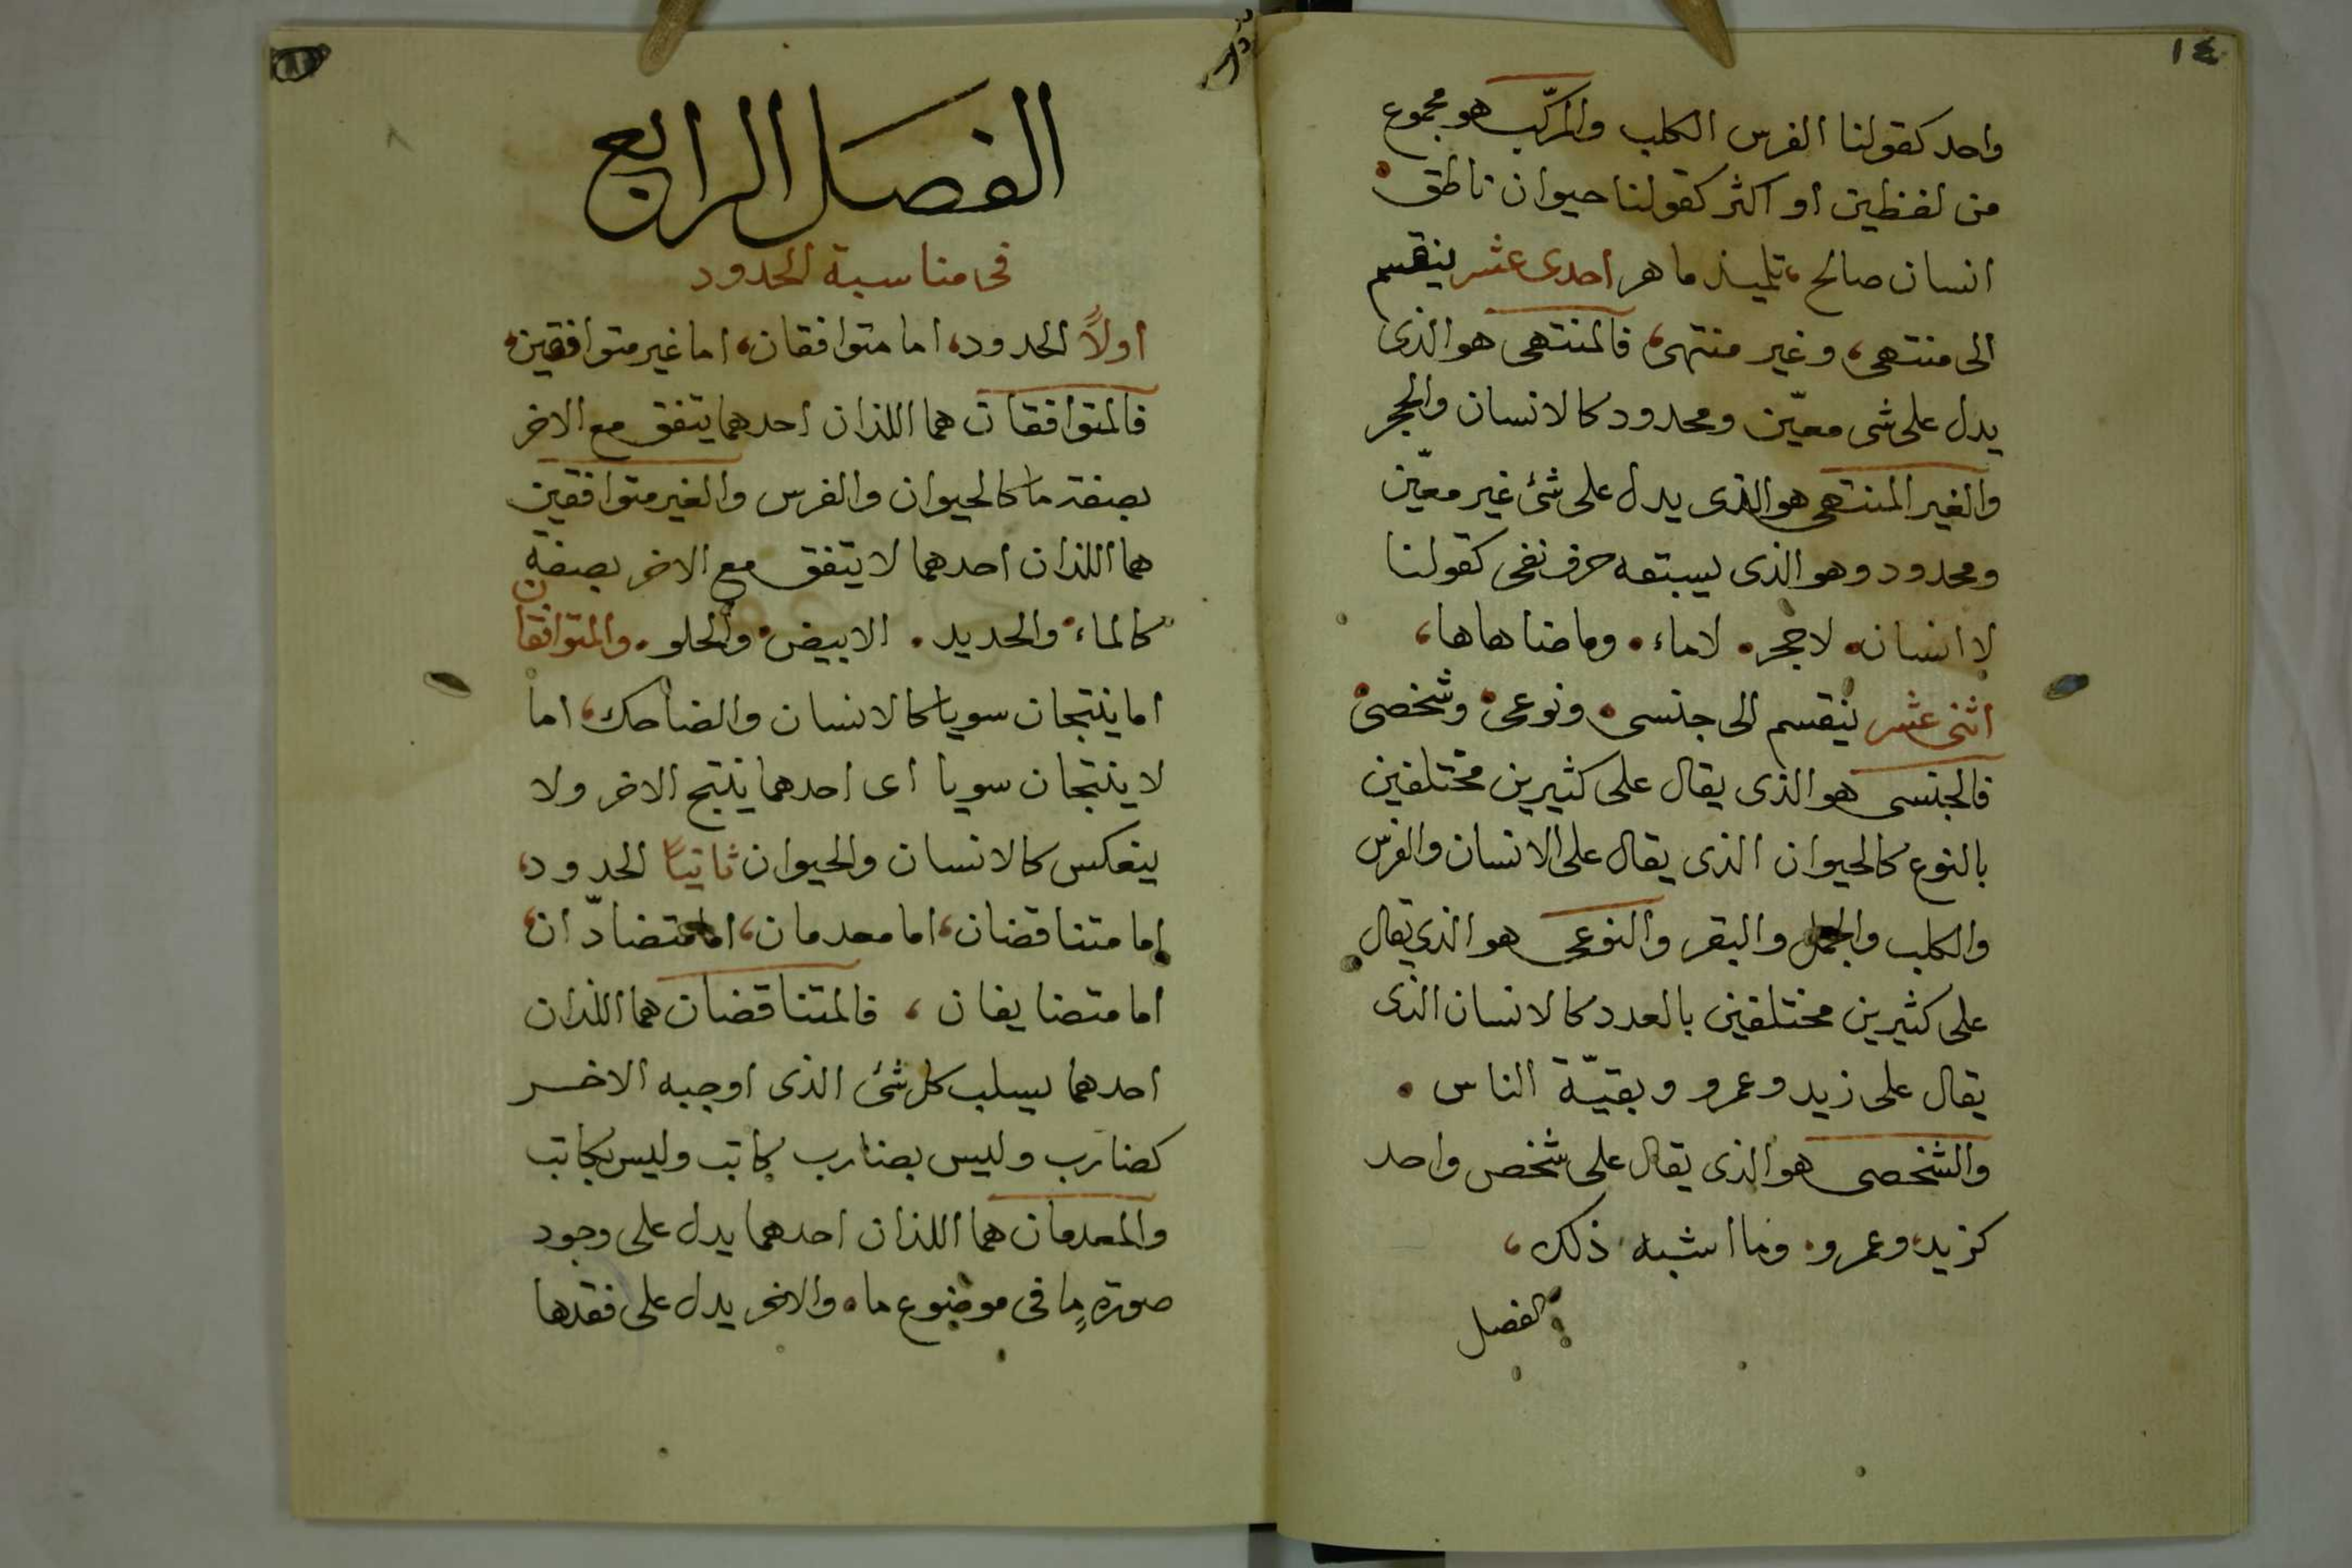 ١٤
واحد كقولنا الفرس الكلب والمركّب هو مجموع
من لفظين او اكثر كقولنا حيوان ناطق.
انسان صالح، تلميذ ماهر احدى عشر ينقسم
الى منتهى، وغير منتهى، فالمنتهى هو الذى
يدل على شى معيّن ومحدود كالانسان والحجر
والغير المنتهى هو الذى يدل على شئ غير معيّن
ومحدود وهو الذى يسبقه حرف نفى كقولنا
لا انسان. لا حجر. لا ماء. وما ضاهاها،
اثنى عشر ينقسم الى جنسى. ونوعى. وشخصى.
فالجنسى هو الذى يقال على كثيرين مختلفين
بالنوع كالحيوان الذى يقال على الانسان والفرس
والكلب والجمل والبقر والنوعى هو الذى يقال
على كثيرين مختلفين بالعدد كالانسان الذى
يقال على زيد وعمرو وبقيّة الناس.
والشخصى هو الذى يقال على شخص واحد
كزيد، وعمرو. وما اشبه ذلك،
الفصل
الفصل الرابع
فى مناسبة الحدود
اولاً الحدود، اما متوافقان، اما غير متوافقين،
فالمتوافقان هما اللذان احدهما يتفق مع الاخر
بصفة ما كالحيوان والفرس والغير متوافقين
هما اللذان احدهما لا يتفق مع الاخر بصفة
كالماء. والحديد. الابيض. والحلو. والمتوافقان
اما ينتجان سويا كالانسان والضاحك، اما
لا ينتجان سويا اى احدهما ينتج الاخر ولا
ينعكس كالانسان والحيوان ثانيًا الحدود،
اما متناقضان، اما معدمان، اما متضادّان،
اما متضايفان، فالمتناقضان هما اللذان
احدهما يسلب كل شئ الذى اوجبه الاخر
كضارب وليس بضارب كاتب وليس بكاتب
والمعدمان هما اللذان احدهما يدل على وجود
صورةٍ ما فى موضوع ما. والاخر يدل على فقدها